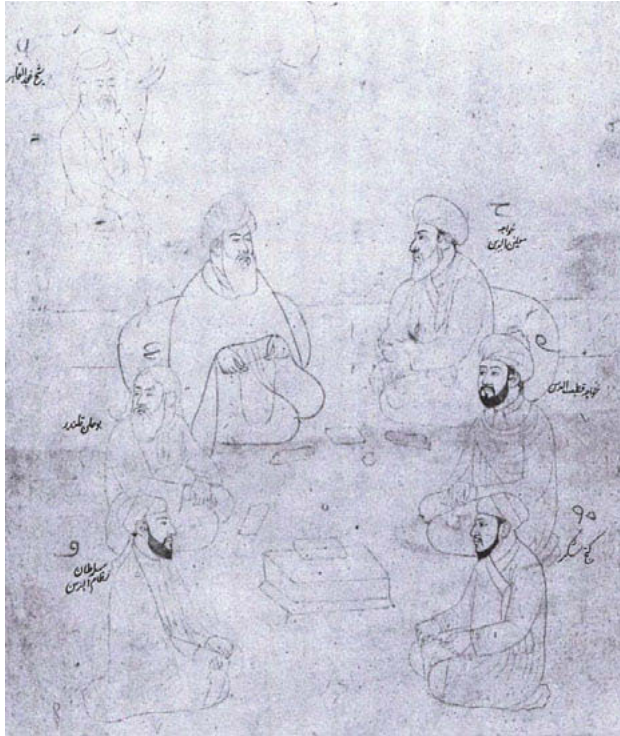 شیخ عبدالقادر
خواجه
معین الدین
خواجه قطب الدین
بوعلی قلندر
گنج شکر
سلطان
نظام الدین